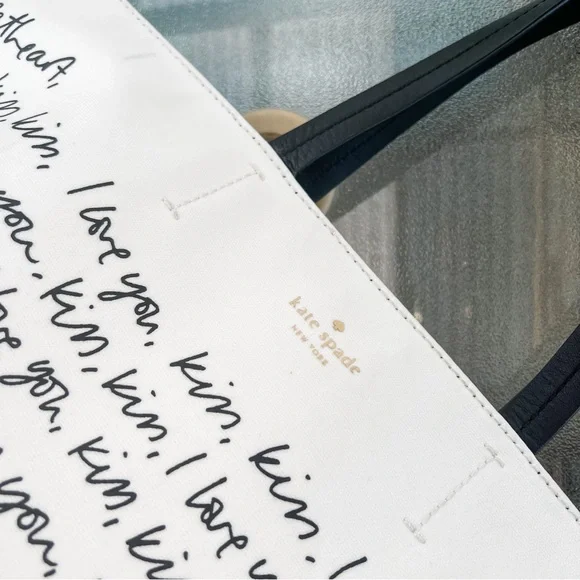 etheart,
kiss, kiss, I love you, kiss, kiss. I
you, kiss, kiss, I love
ove you, kiss, ki
you,
kate spade
NEW YORK